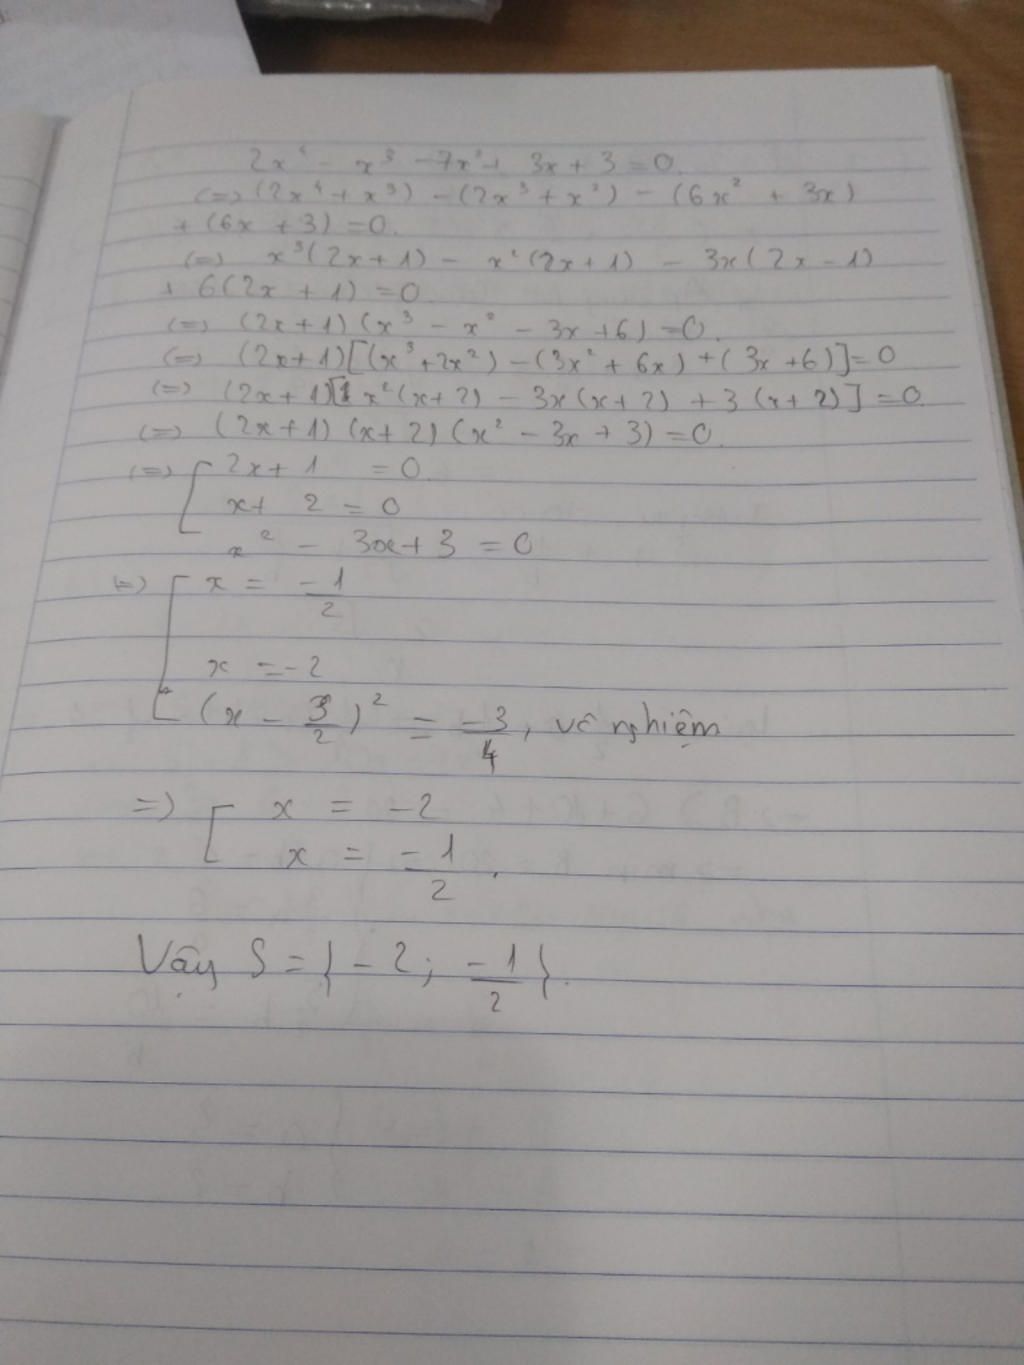 2x⁴ - x³ - 7x² + 3x + 3 = 0.
(=) (2x⁴ + x³) - (2x³ + x²) - (6x² + 3x)
+ (6x + 3) = 0.
(=) x³(2x + 1) - x²(2x + 1) - 3x(2x - 1)
+ 6(2x + 1) = 0.
(=) (2x + 1) (x³ - x² - 3x + 6) = 0.
(=) (2x + 1)[(x³ + 2x²) - (3x² + 6x) + (3x + 6)] = 0
(=) (2x + 1)[x²(x + 2) - 3x(x + 2) + 3(x + 2)] = 0.
(=) (2x + 1) (x + 2) (x² - 3x + 3) = 0.
(=) [ 2x + 1 = 0.
x + 2 = 0
x² - 3x + 3 = 0
(=) [ x = -1/2
x = -2
(x - 3/2)² = -3/4, vô nghiệm
=) [ x = -2
x = -1/2.
Vậy S = {-2; -1/2}.